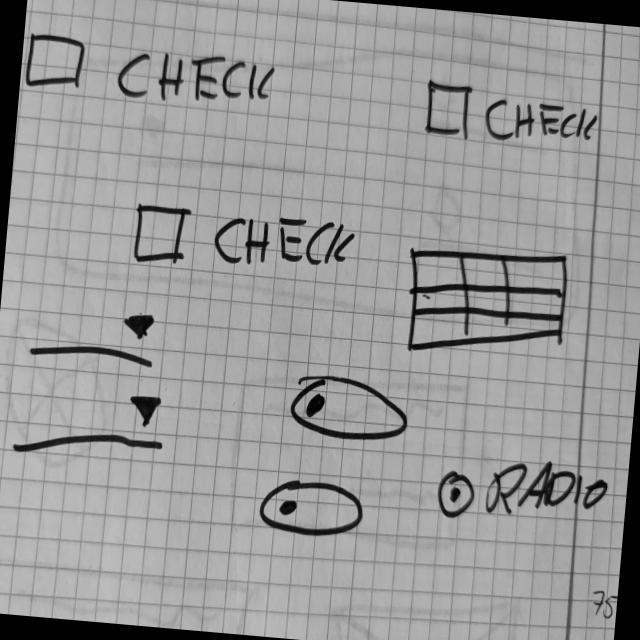 CHECK
CHECK
CHECK
RADIO